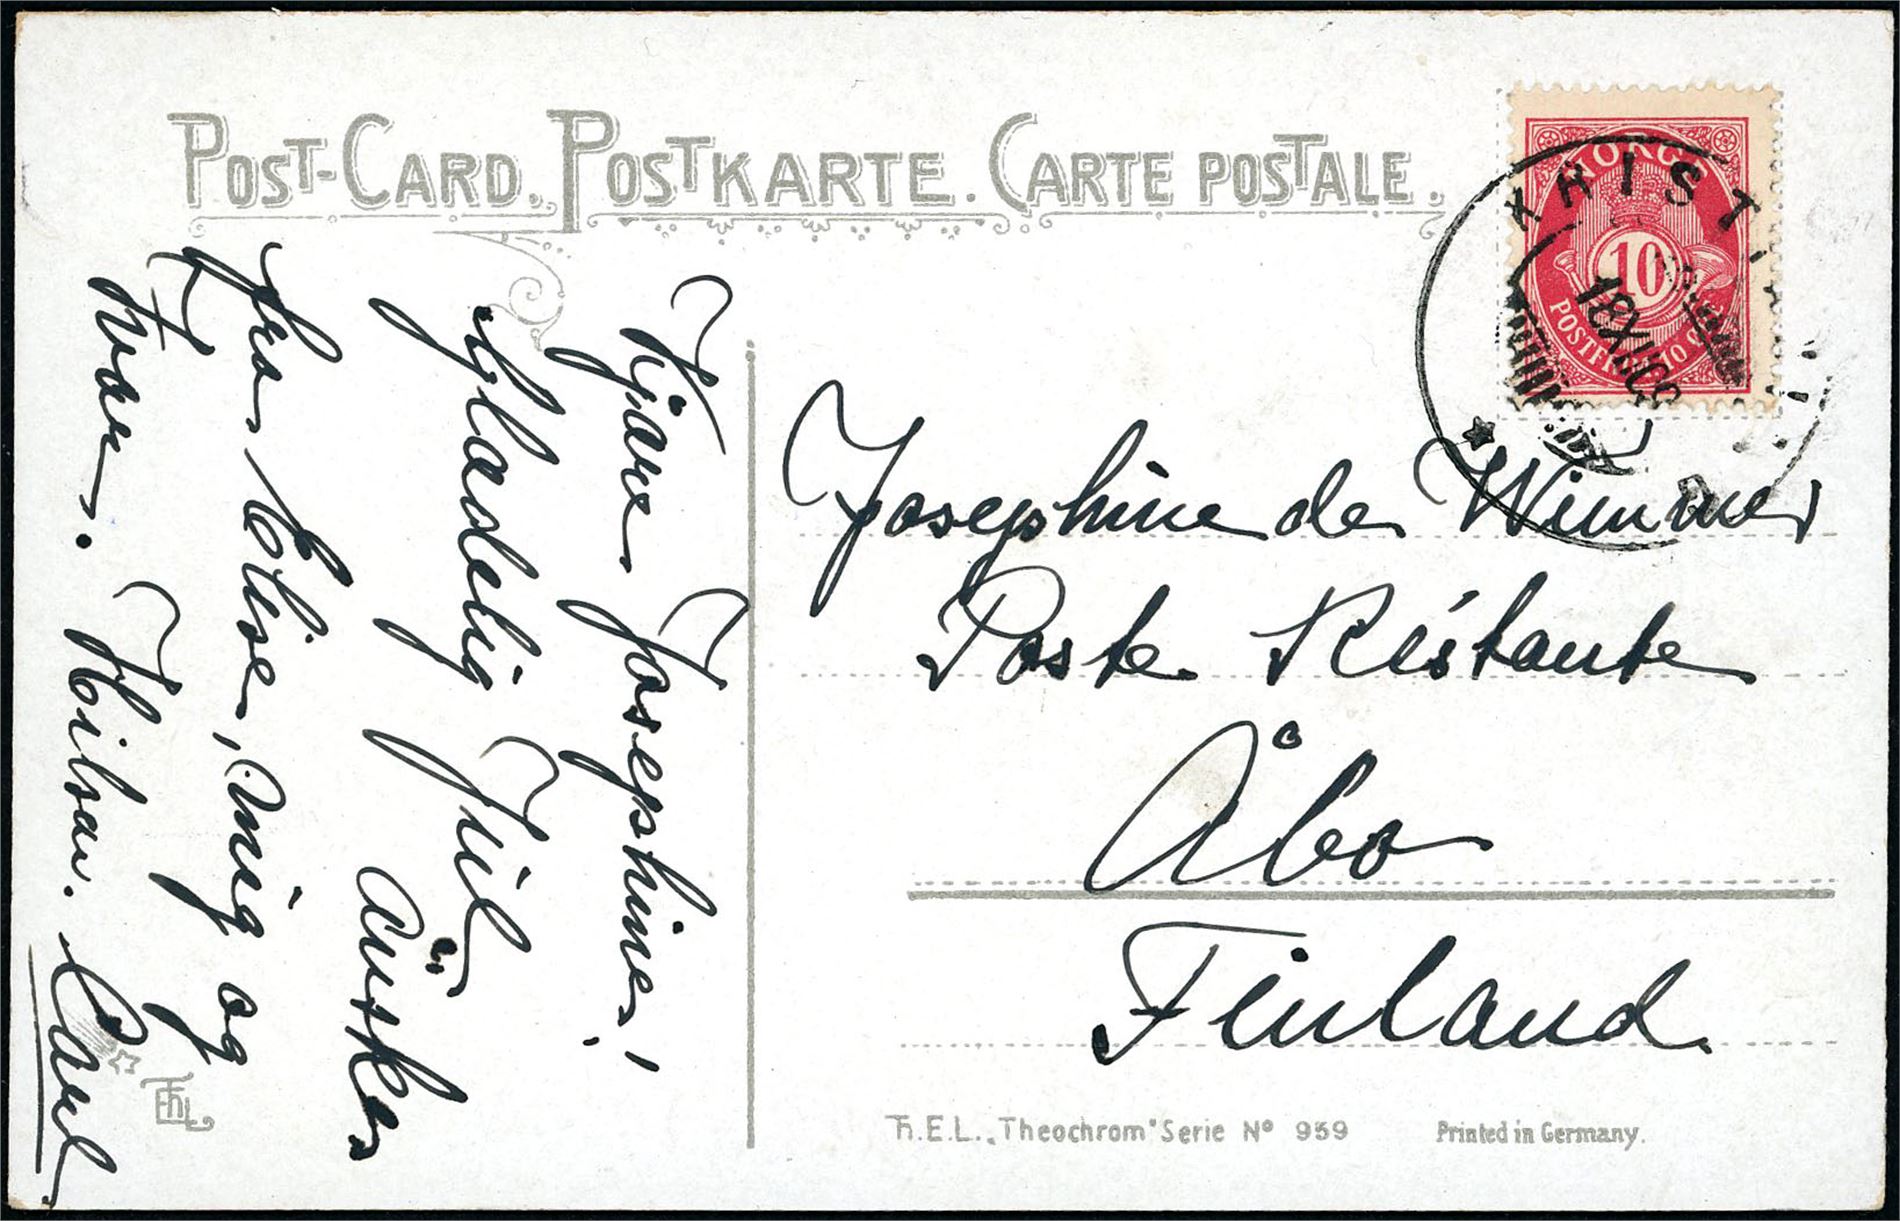 POST-CARD. POSTKARTE. CARTE POSTALE.
NORGE
10
POSTFRIM. 10
KRISTIANIA
18 XII 09
Kjære Josephine!
Glædelig Jul
önskes
fra Elise, mig og
Ivar. Hilsen. Carl
Josephine de Wimmer
Poste Réstante
Åbo
Finland.
Th.E.L. „Theochrom" Serie No 959
Printed in Germany.
ThEL